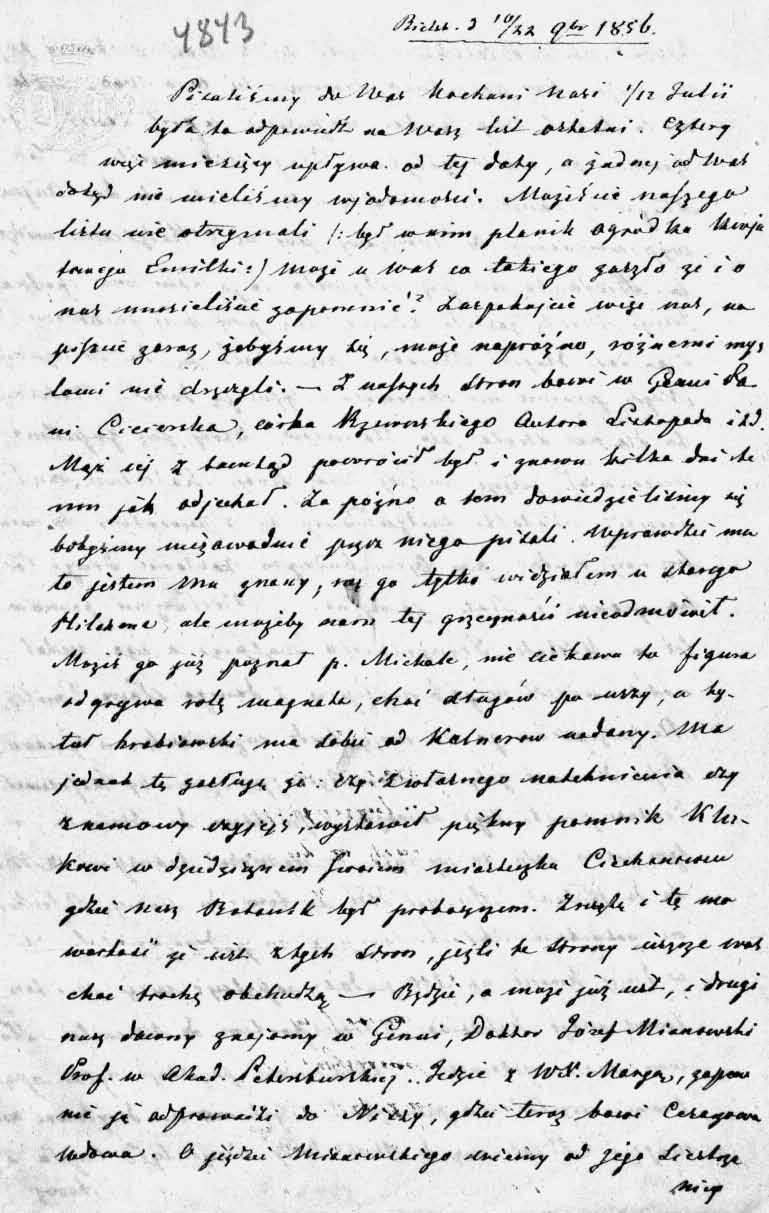 4843
Bielsk. d 10/22 9br 1856.
Pisaliśmy do Was Kochani Nasi 1/12 Julii
była to odpowiedź na Wasz list ostatni. Cztery
więc miesięcy upływa od tej daty, a żadnej od Was
dotąd nie mieliśmy wiadomości. Możiście naszego
listu nie otrzymali /: był w nim planik ogródka
Emilki :/ może u was co takiego zaszło że i o
nas musieliście zapomnieć? Zaspokójcie więc nas, na
piszcie zaraz, żebyśmy się, może napróżno, różnemi myś
lami nie dręczyli. — Z naszych stron bawi w Genui Pa
ni Ciecierska, córka Rzewuskiego Autora Listopada itd.
Mąż jej z tamtąd powrócił był i znowu kilka dni te
mu jak odjechał. Za późno o tem dowiedzieliśmy się
bobyśmy niezawodnie przez niego pisali. Wprawdzie ma
ło jestem mu znany, raz go tylko widziałem u starego
ale możeby nam tej grzeczności nieodmówił.
Moześ go już poznał p. Michale, nie ciekawa to figura
odgrywa rolę magnata, choć długów po uszy, a ty-
tuł hrabiowski ma dobie od nadany. Ma
jednak tę zasługę że czy z własnego natchnienia czy
z namowy czyjejś, wystawił piękny pomnik Klu-
kowi w dziedzicznem swoiem miasteczku Ciechanowcu
gdzie nasz Botanik był proboszczem. Zresztą i tę ma
wartość że jest z tych stron, jeżli te strony jeszcze was
choć trochę obchodzą — Będzie, a może już jest, i drugi
nasz dawny znajomy w Genui, Doktor Józef Mianowski
Prof. w Akad. Petersburskiej. Jedzie z W.X. Maryą, zapew
nie ją odprowadzi do Niccy, gdzie teraz bawi Cezarowa
wdowa. O jeździe Mianowskiego wiemy od jego Siestrze
nicy